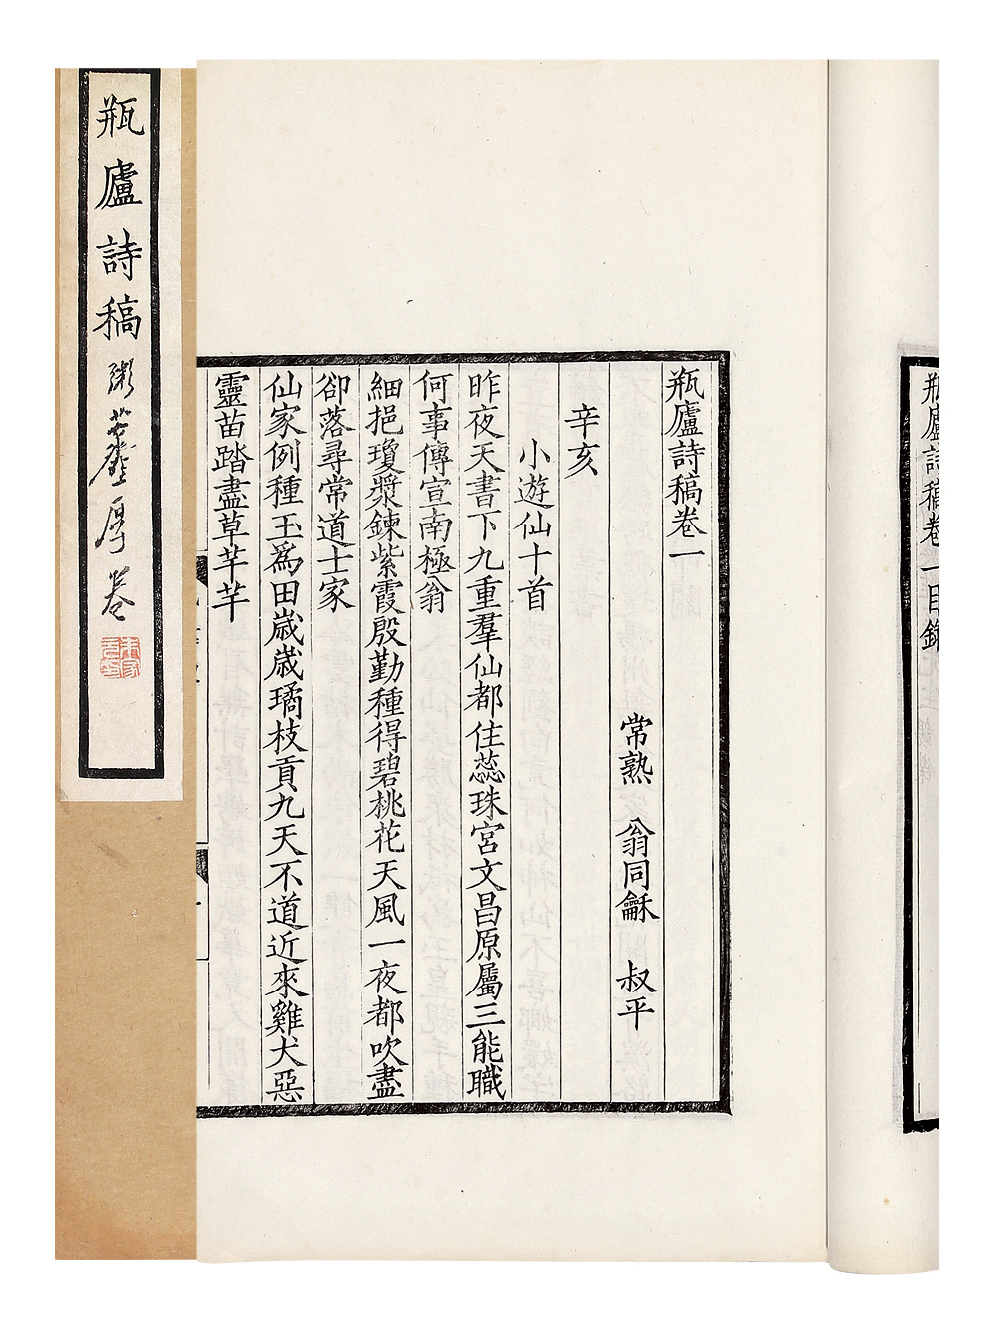 瓶廬詩稿卷一目錄
瓶廬詩稿卷一
常熟 翁同龢 叔平
辛亥
小遊仙十首
昨夜天書下九重羣仙都住蕊珠宮文昌原屬三能職
何事傳宣南極翁
細挹瓊漿鍊紫霞殷勤種得碧桃花天風一夜都吹盡
卻落尋常道士家
仙家例種玉爲田歲歲璚枝貢九天不道近來雞犬惡
靈苗踏盡草芊芊
瓶廬詩稿